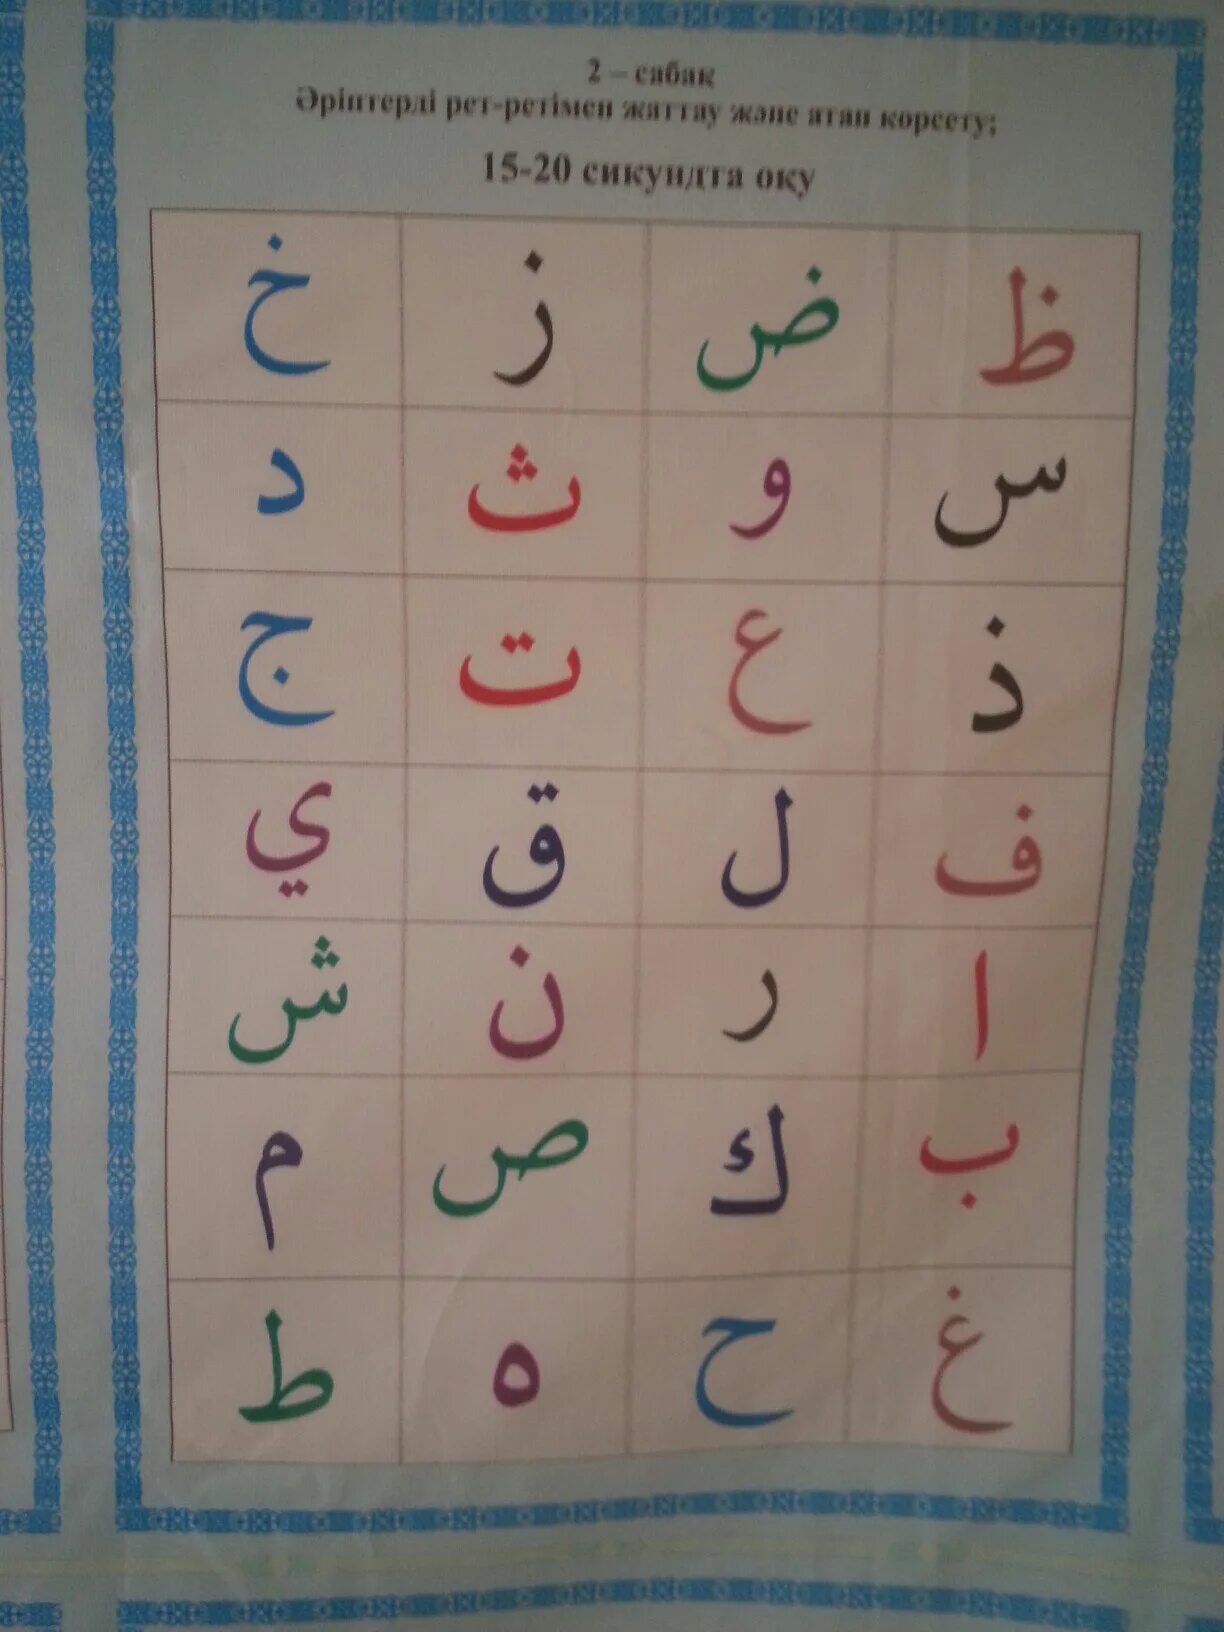 2 – сабақ
Әріптерді рет-ретімен жаттау және атап көрсету;
15-20 сикундта оқу
ظ ض ز خ
س و ث د
ذ ع ت ج
ف ل ق ي
ا ر ن ش
ب ك ص م
غ ح ه ط